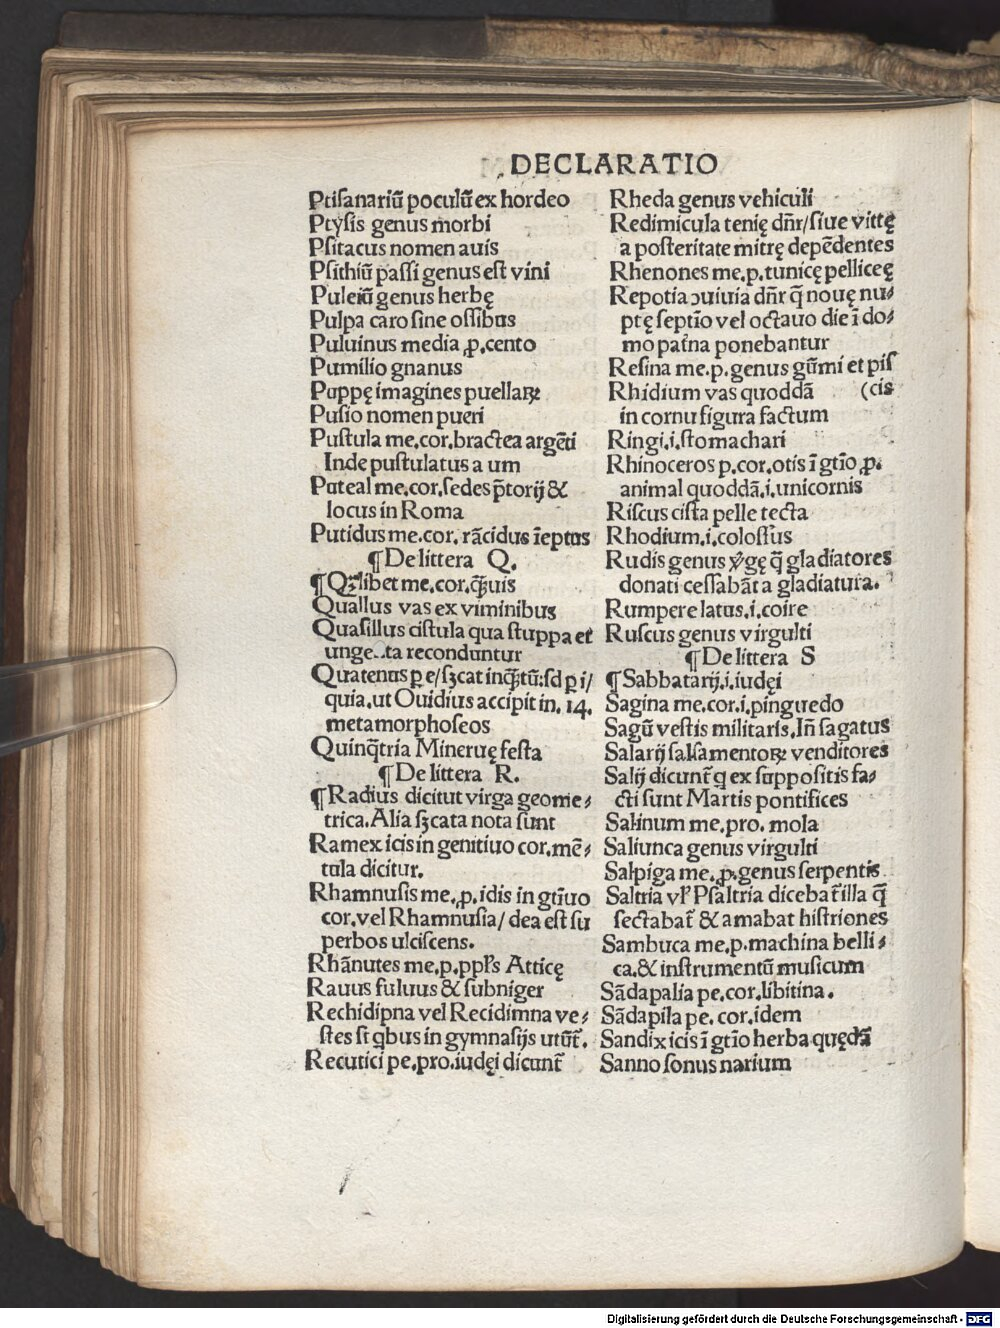 DECLARATIO
Ptiſanariū poculū ex hordeo
Ptyſis genus morbi
Pſitacus nomen auis
Pſithiū paſſi genus eſt vini
Puleiū genus herbę
Pulpa caro ſine oſſibus
Puluinus media ꝓ.cento
Pumilio gnanus
Puppę imagines puellaꝝ
Puſio nomen pueri
Puſtula me.cor.bractea argēti
Inde puſtulatus a um
Puteal me.cor.ſedes p̄torij &
locus in Roma
Putidus me.cor. rācidus īeptus
¶ De littera Q.
¶ Qꝫlibet me.cor.ꝙuis
Quallus vas ex viminibus
Quaſillus ciſtula qua ſtuppa et
ta reconduntur
Quatenus ꝑ e/ſꝫcat inꝙtū:ſd ꝑ i/
quia.ut Ouidius accipit in. 14.
metamorphoſeos
Quinq̄tria Mineruę feſta
¶ De littera R.
¶ Radius dicitut virga geome⸗
trica.Alia ſꝫcata nota ſunt
Ramex icis in genitiuo cor.mē⸗
tula dicitur.
Rhamnuſis me.ꝓ.idis in gtīuo
cor.vel Rhamnuſia/ dea eſt ſu
perbos ulciſcens.
Rhānutes me.p.ppľs Atticę
Rauus fuluus & ſubniger
Rechidipna vel Recidimna ve⸗
ſtes ſt̄ qbus in gymnaſijs utūt̄.
Recutici pe.pro.iudęi dicunt̄
Rheda genus vehiculi
Redimicula tenię dn̄r/ſiue vittę
a poſteritate mitrę depēdentes
Rhenones me.p.tunicę pelliceę
Repotia ↄuiuia dn̄r q̄ nouę nu⸗
ptę ſeptīo vel octauo die ī do⸗
mo pat̄na ponebantur
Reſina me.p.genus gūmi et piſ
Rhidium vas quoddā (cis
in cornu figura factum
Ringi.i.ſtomachari
Rhinoceros p.cor.otis ī gtīo ꝓ.
animal quoddā.i.unicornis
Riſcus ciſta pelle tecta
Rhodium.i.coloſſus
Rudis genus v̓gę q̄ gladiatores
donati ceſſabāt a gladiatura.
Rumpere latus.i.coire
Ruſcus genus virgulti
¶ De littera S
¶ Sabbatarij.i.iudęi
Sagina me.cor.i.pinguedo
Sagū veſtis militaris.In̄ ſagatus
Salarij ſalſamentoꝝ venditores
Salij dicunt̄ q ex ſuppoſitis fa⸗
cti ſunt Martis pontifices
Salinum me.pro. mola
Saliunca genus virgulti
Salpiga me.ꝓ.genus ſerpentis
Saltria vľ Pſaltria dicebat̄ illa q̄
ſectabat̄ & amabat hiſtriones
Sambuca me.p.machina belli⸗
ca.& inſtrumentū muſicum
Sādapalia pe.cor.libitina.
Sādapila pe.cor.idem
Sandix icis ī gtīo herba quędā
Sanno ſonus narium
Digitalisierung gefördert durch die Deutsche Forschungsgemeinschaft - DFG